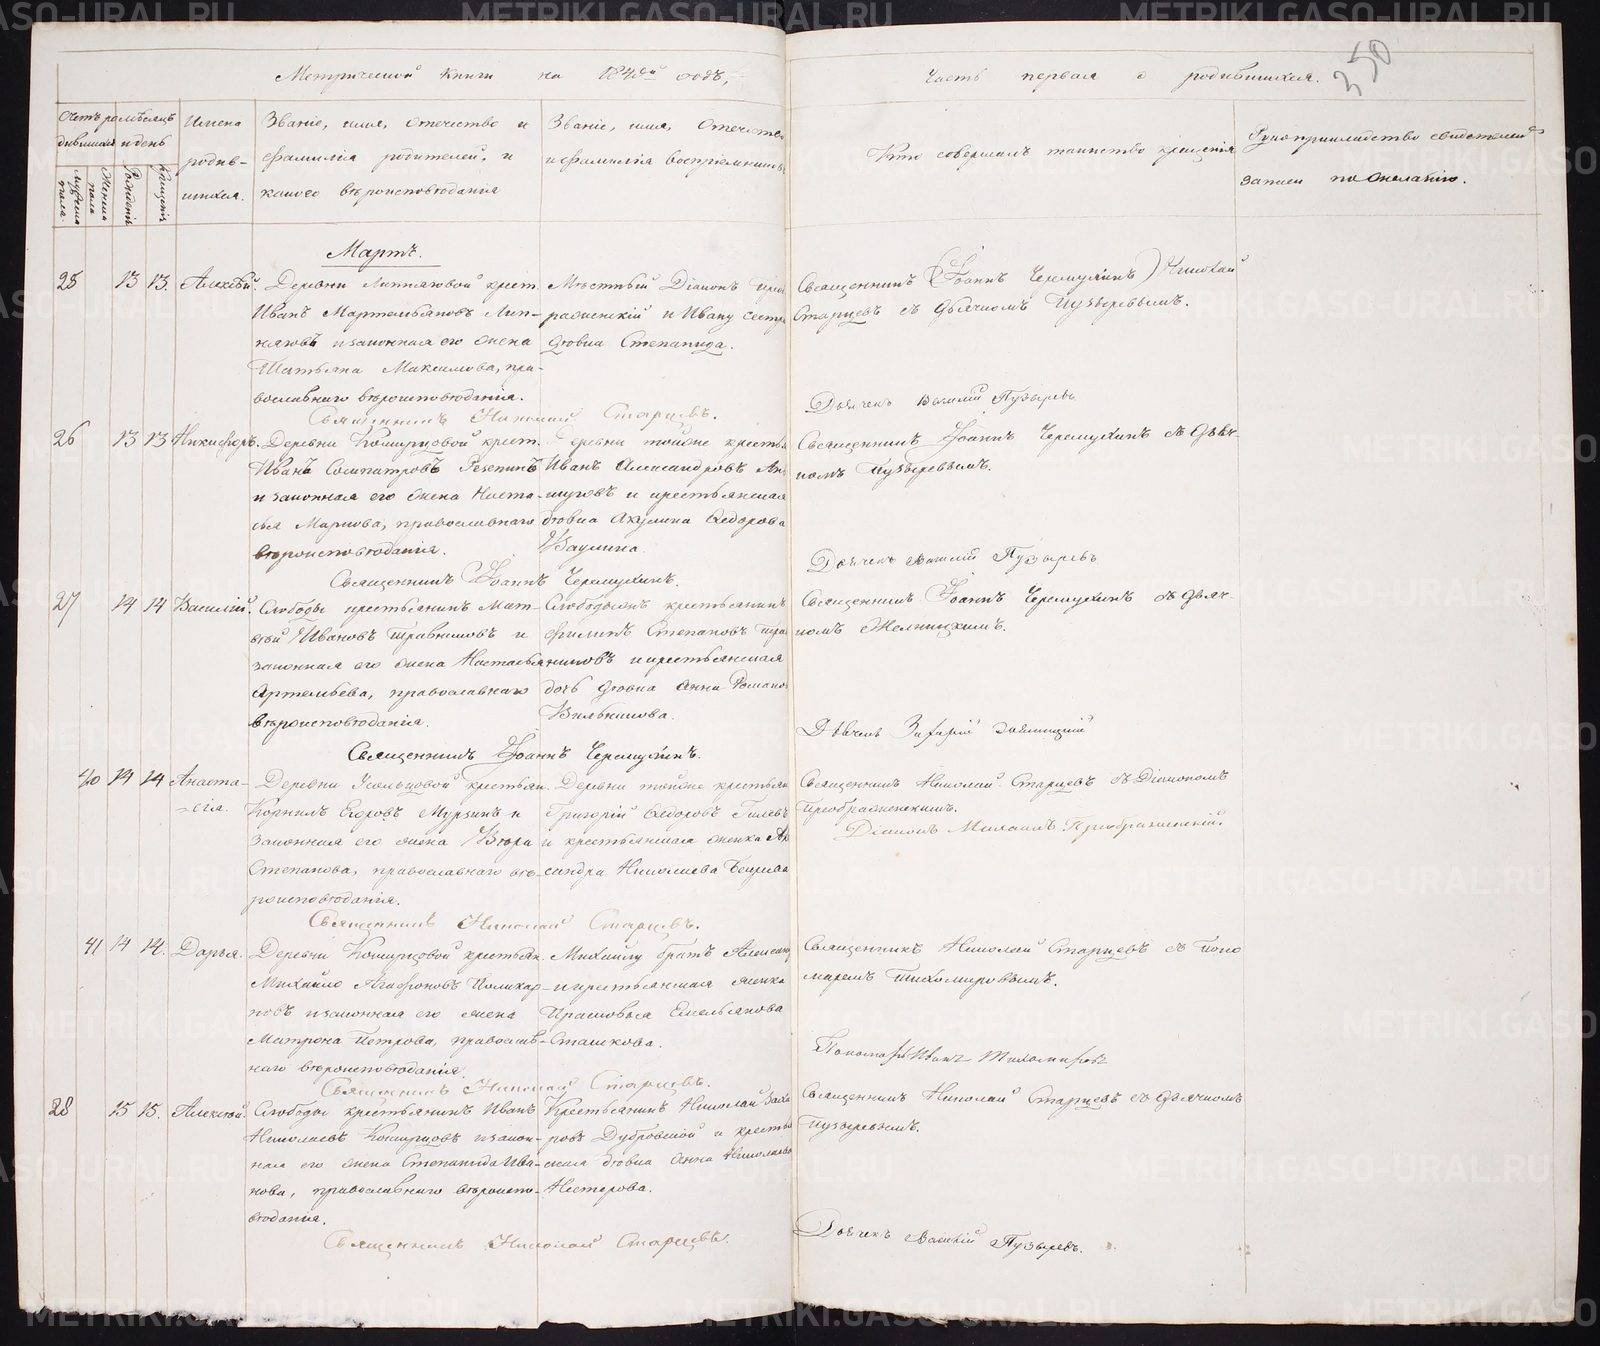 Метрической книги на 1840й годъ,
Часть первая о родившихся.
350
Счетъ родившихся
мѣсяцъ и день
Имена родившихся.
Званіе, имя, отчество и
фамилія родителей, и
какого вѣроисповѣданія
Званіе, имя, отчество
и фамилія воспріемниковъ
Кто совершалъ таинство крещенія
Рукоприкладство свидѣтелей
записи по желанію.
мужеска пола.
женска пола
Рожденія
крещенія
Мартъ.
25 13 13. Алексѣй.
Деревни Липняговой крест.
Иванъ Мартемьяновъ Лип-
няговъ и законная его жена
Татьяна Максимова, пра-
вославнаго вѣроисповѣданія.
Мѣстный Діаконъ
и Ивану сестра
дѣвка Степанида.
Священникъ (Іоаннъ Черемухинъ) Николай
Старцевъ съ дьячкомъ Пузыревымъ.
Дьячекъ Василій Пузыревъ
Священникъ Николай Старцевъ.
26 13 13 Никифоръ.
Деревни Кошурцовой крест.
Иванъ Сосипатровъ Резепинъ
и законная его жена Наста-
сья Маркова, православнаго
вѣроисповѣданія.
Деревни тойже крестья
Иванъ Александровъ
и крестьянская
дѣвка Акулина Федорова
Ваулина.
Священникъ Іоаннъ Черемухинъ съ дьяч-
комъ Пузыревымъ.
Дьячекъ Василій Пузыревъ
Священникъ Іоаннъ Черемухинъ.
27 14 14 Василій.
Слободы крестьянинъ Мат-
вѣй Ивановъ Травниковъ и
законная его жена Настасья
Артемьева, православнаго
вѣроисповѣданія.
Слободскій крестьянинъ
Филипъ Степановъ Трав
никовъ и крестьянская
дочь дѣвка Анна Романо
Вялькинова.
Священникъ Іоаннъ Черемухинъ съ дьяч-
комъ
Дьячекъ
Священникъ Іоаннъ Черемухинъ.
40 14 14 Анаста-
сія.
Деревни Усольцовой крестьян.
Корнилъ Егоровъ Мурзинъ и
законная его жена Вѣра
Степанова, православнаго вѣ-
роисповѣданія.
Деревни тойже крестьян
Григорій Федоровъ Гилевъ
и крестьянская женка
сандра Николаева
Священникъ Николай Старцевъ съ Діакономъ
Преображенскимъ.
Діаконъ Михаилъ Преображенскій.
Священникъ Николай Старцевъ.
41 14 14. Дарья.
Деревни Кошурцовой крестьян.
Михайло Агафоновъ Поликар-
повъ и законная его жена
Матрона Петрова, православ-
наго вѣроисповѣданія.
Михайлу братъ Александ
и крестьянская женка
Прасковья Емельянова
Сташкова.
Священникъ Николай Старцевъ съ Поно
маремъ Тихомировымъ.
Пономарь Иванъ Тихомировъ
Священникъ Николай Старцевъ.
28 15 15. Алексѣй.
Слободы крестьянинъ Иванъ
Николаевъ Кошурцовъ и закон-
ная его жена Степанида Ива-
нова, православнаго вѣроиспо-
вѣданія.
Крестьянинъ Николай Заха
ровъ Дубровской и крестья
нская дѣвка Анна Николаева
Нестерова.
Священникъ Николай Старцевъ съ дьячкомъ
Пузыревымъ.
Дьячекъ Василій Пузыревъ.
Священникъ Николай Старцевъ.
METRIKI.GASO-URAL.RU